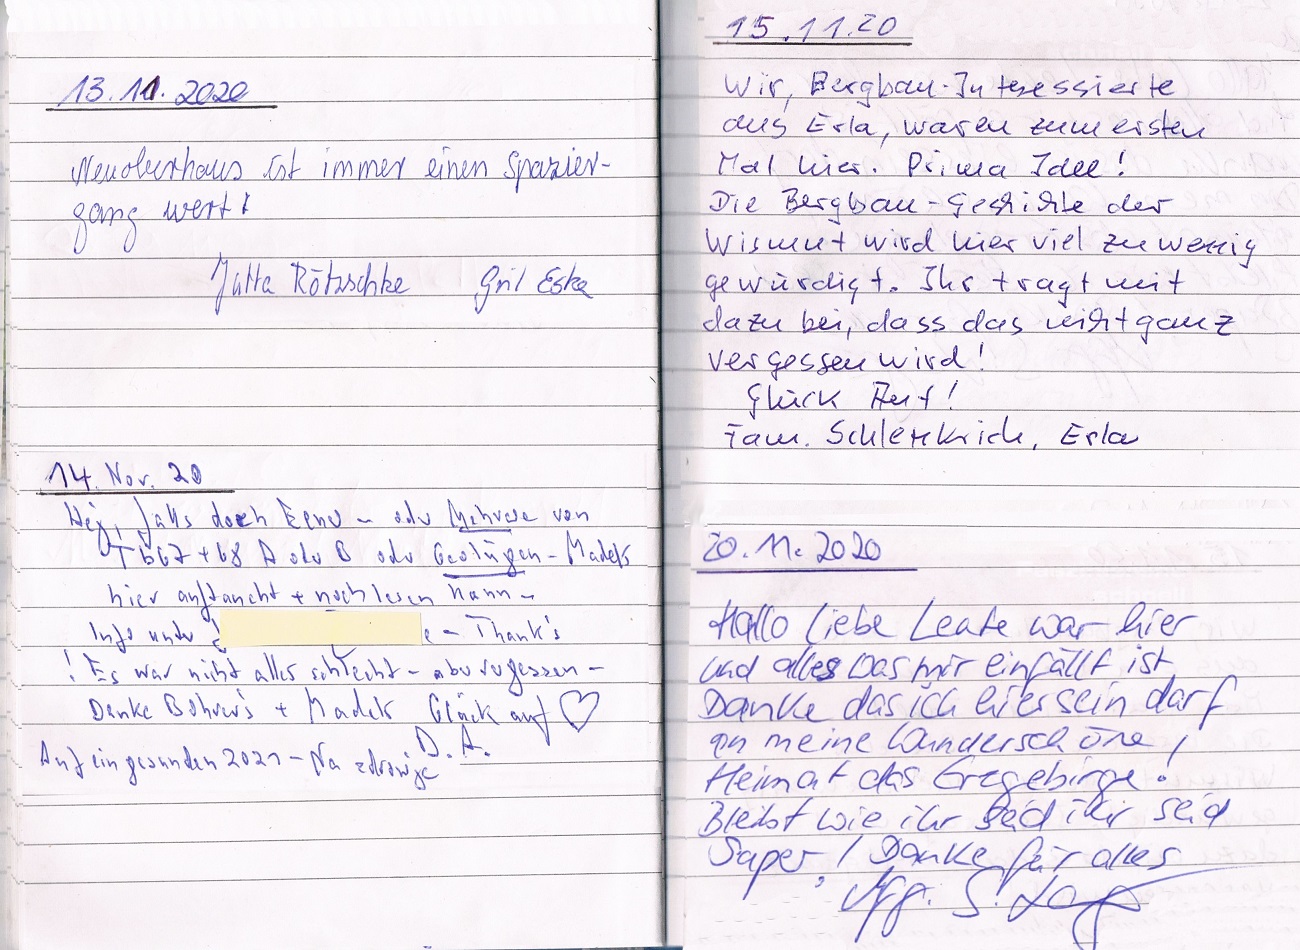 13.11.2020
Neuoberhaus ist immer einen Spazier-
gang wert!
Jutta Rötzschke
14. Nov. 20
Hey, falls doch Eener - oder Mehrere von
67 + 68 A oder B oder - Madels
hier auftaucht + noch lesen kann -
Info unter - Thank's
! Es war nicht alles schlecht - aber vergessen -
Danke Bohrer's + Madels Glück auf ♡
D. A.
Auf ein gesunden 2021 - Na zdrowje
15.11.20
Wir, Bergbau-Interessierte
aus Erla, waren zum ersten
Mal hier. Prima Idee!
Die Bergbau-Geschichte der
Wismut wird hier viel zu wenig
gewürdigt. Ihr tragt mit
dazu bei, dass das nicht ganz
vergessen wird!
Glück Auf!
Fam. Schlenkrich, Erla
20.11.2020
Hallo liebe Leute war hier
und alles was mir einfällt ist
Danke das ich hier sein darf
an meine Wunderschöne,
Heimat das Erzgebirge!
Bleibt wie ihr seid ihr seid
Super! Danke für alles